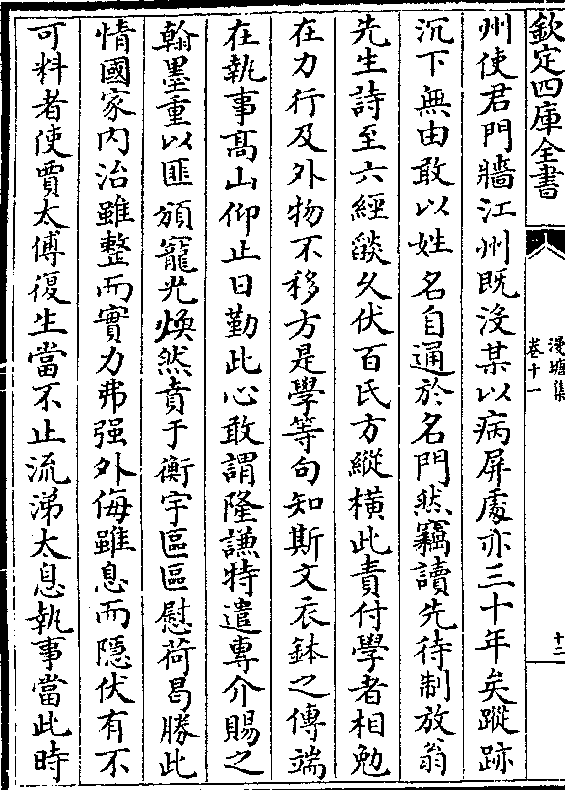 欽定四庫全書
漫塘集
卷十一
十二
州使君門牆江州既沒某以病屏處亦三十年矣蹤跡
沉下無由敢以姓名自通於名門然竊讀先待制放翁
先生詩至六經燄久伏百氏方縱橫此責付學者相勉
在力行及外物不移方是學等句知斯文衣鉢之傳端
在執事高山仰止日勤此心敢謂隆謙特遣專介賜之
翰墨重以匪頒寵光煥然賁于衡宇區區慰荷曷勝此
情國家內治雖整而實力弗强外侮雖息而隱伏有不
可料者使賈太傅復生當不止流涕太息執事當此時